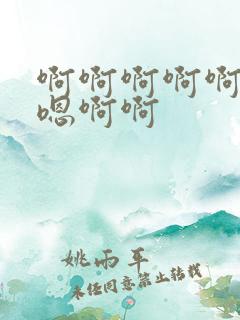 啊啊啊啊啊
嗯啊啊
姚雨平
未经同意禁止转载